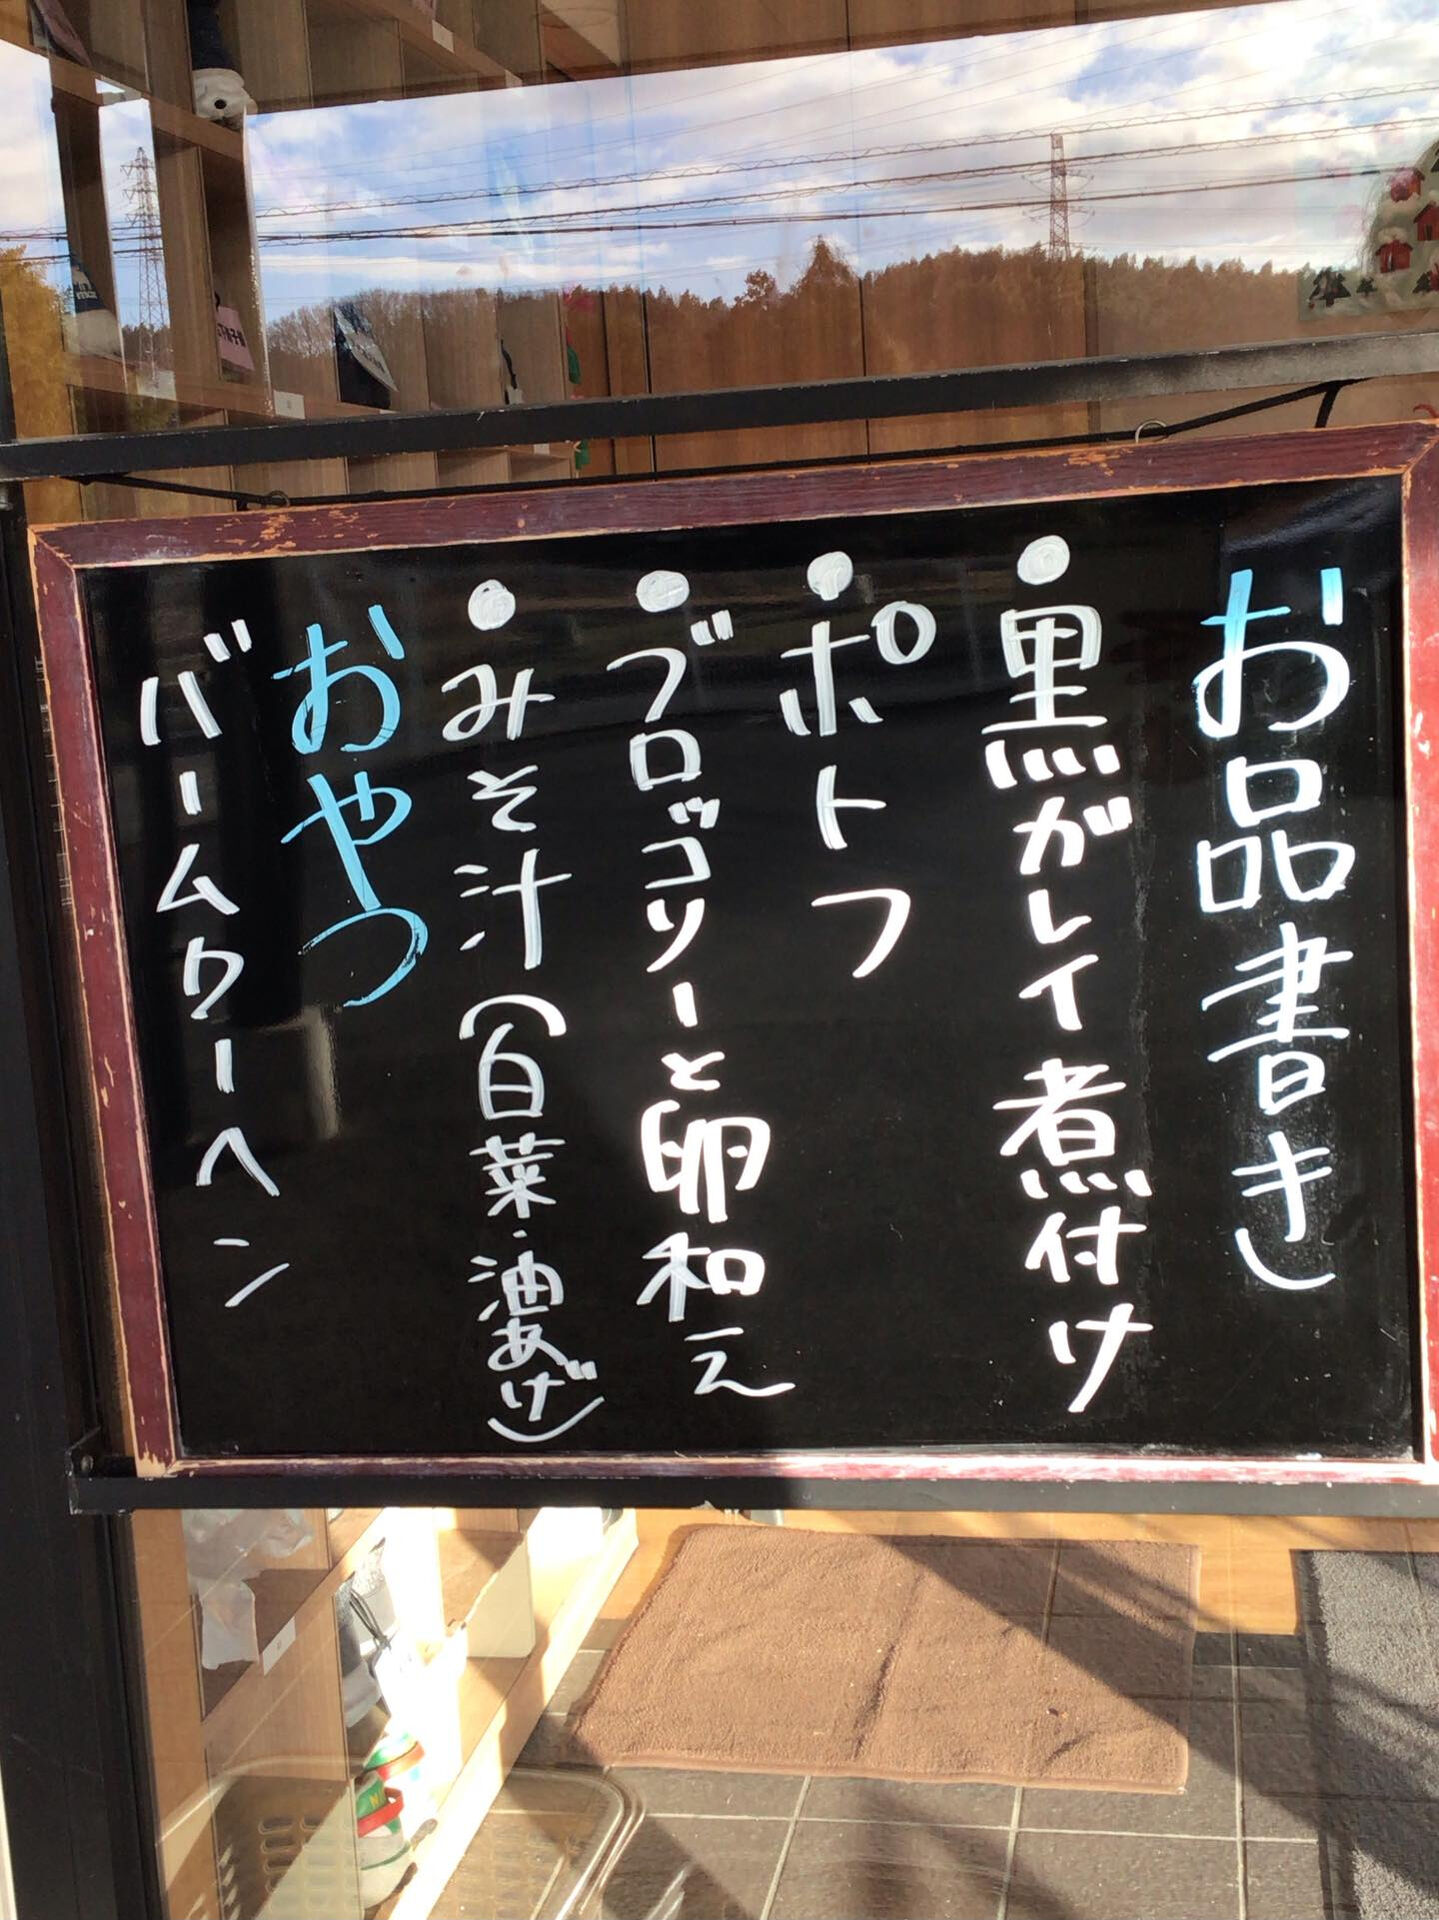 お品書き
●黒ガレイ煮付け
●ポトフ
●ブロッコリーと卵和え
●みそ汁(白菜・油あげ)
おやつ
バームクーヘン